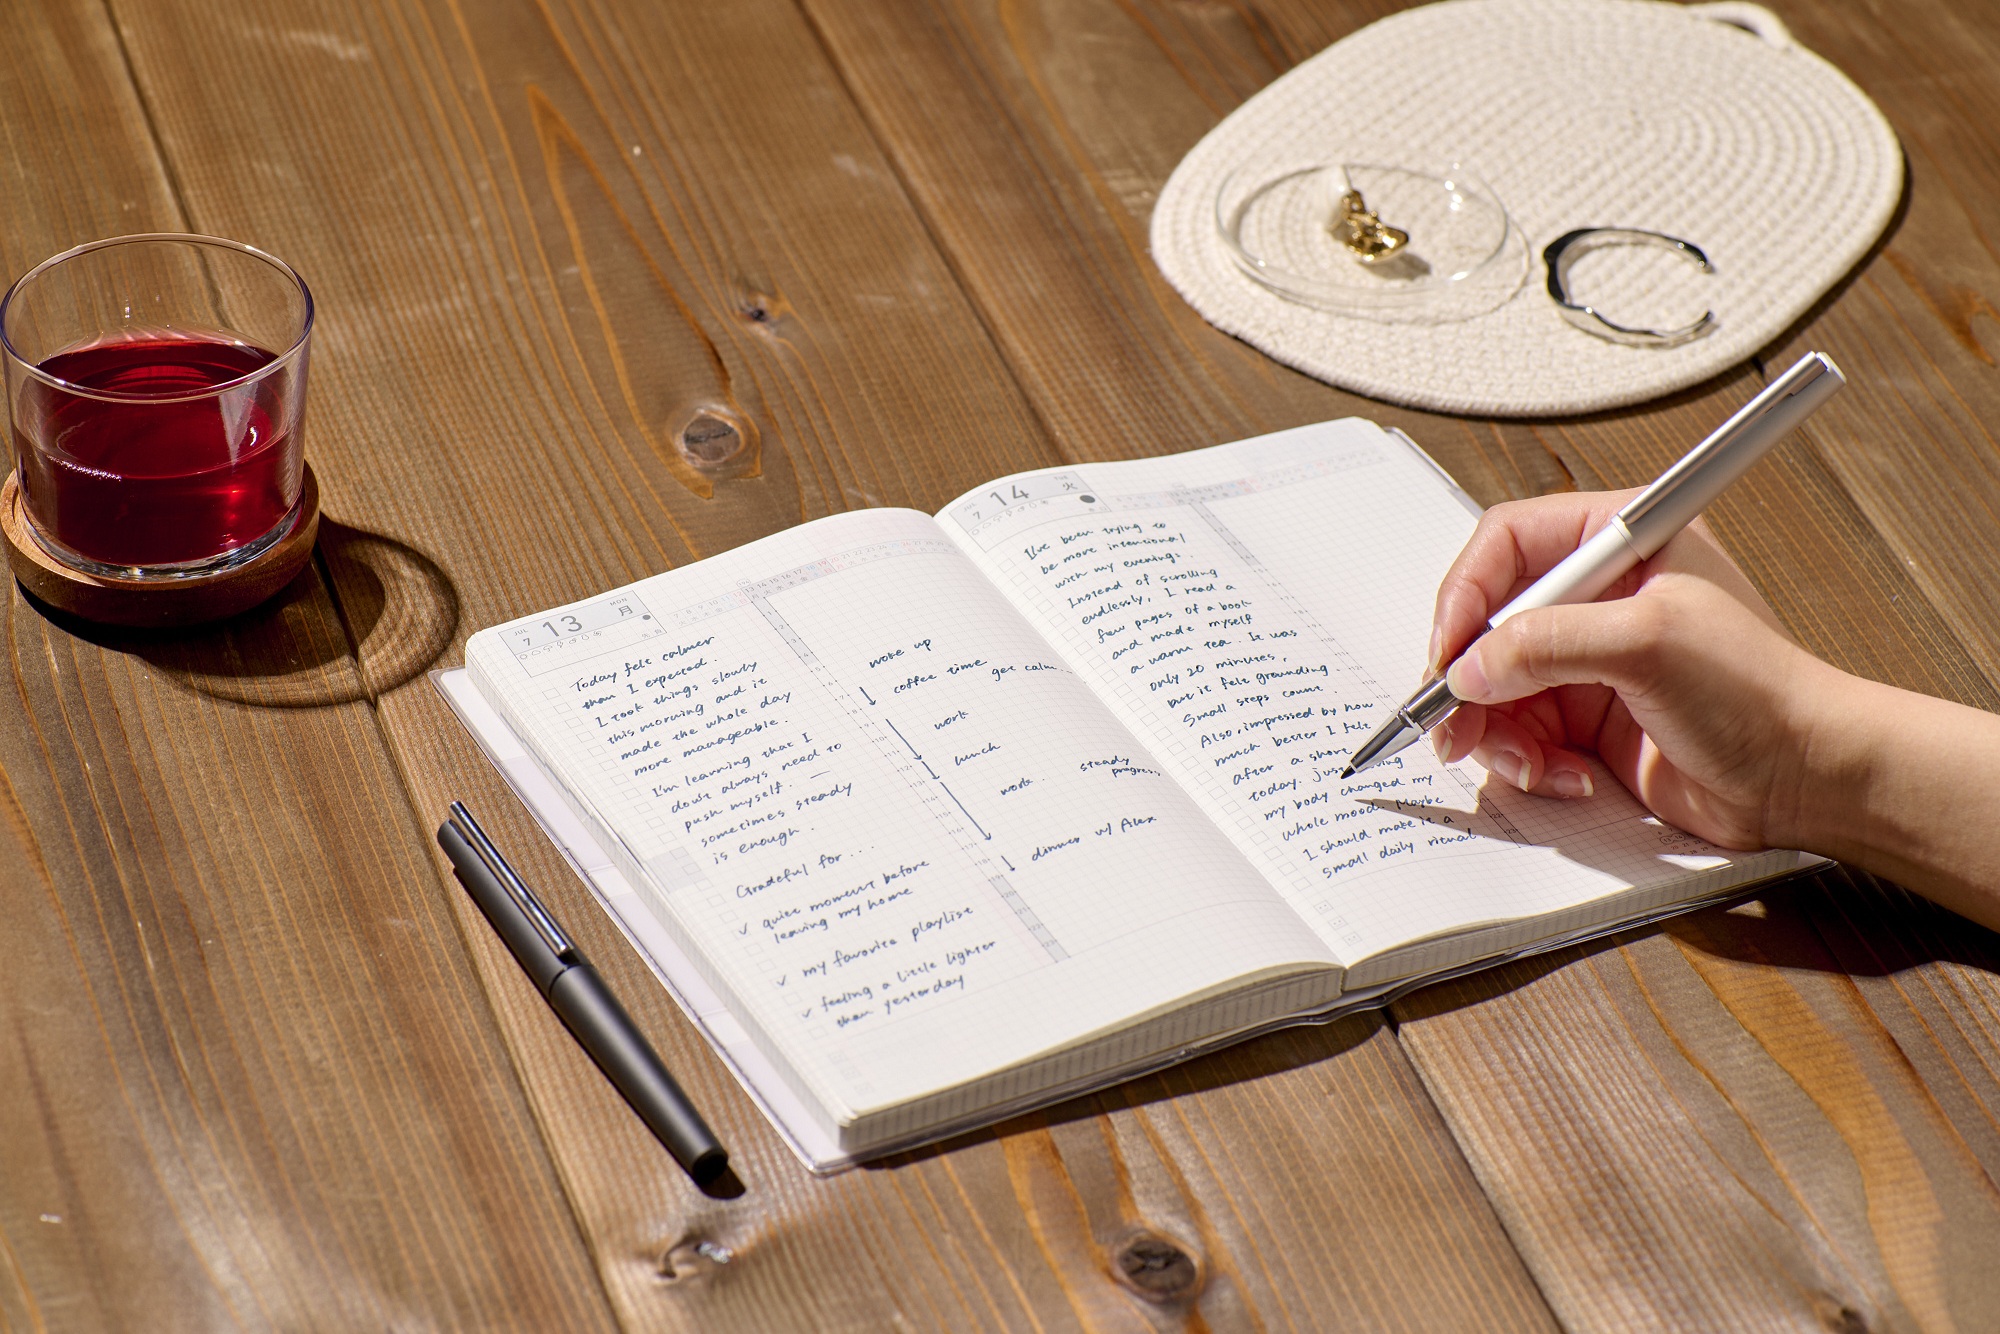 JUL
7
13
MON
月
Today felt calmer
than I expected.
I took things slowly
this morning and it
made the whole day
more manageable.
I'm learning that I
don't always need to
push myself. —
sometimes steady
is enough.
Grateful for ...
✓ quiet moment before
leaving my home
✓ my favorite playlist
✓ feeling a little lighter
than yesterday
woke up
coffee time
get calm..
work
lunch
work.
steady
progress..
dinner w/ Alex
JUL
7
14
TUE
火
I've been trying to
be more intentional
with my evenings.
Instead of scrolling
endlessly, I read a
few pages of a book
and made myself
a warm tea. It was
only 20 minutes,
but it felt grounding.
Small steps count.
Also, impressed by how
much better I felt
after a short
today. just
my body changed my
whole mood. Maybe
I should make it a
small daily ritual.